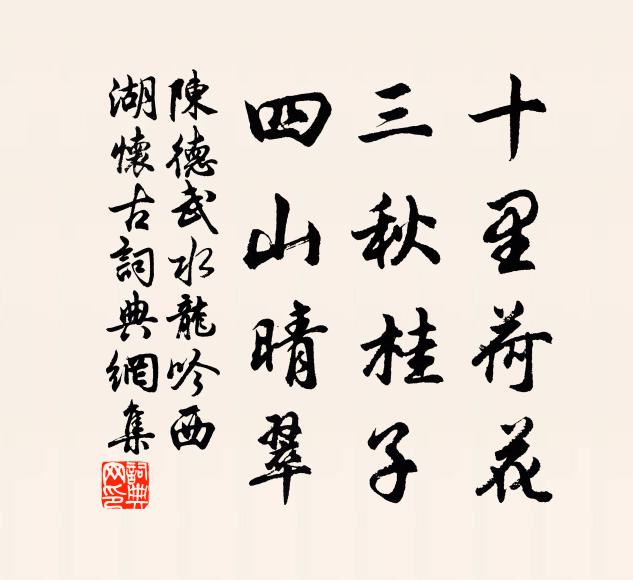 十里荷花
三秋桂子
四山晴翠
陳德武水龍吟西
湖懷古詞典網集
詞典网印